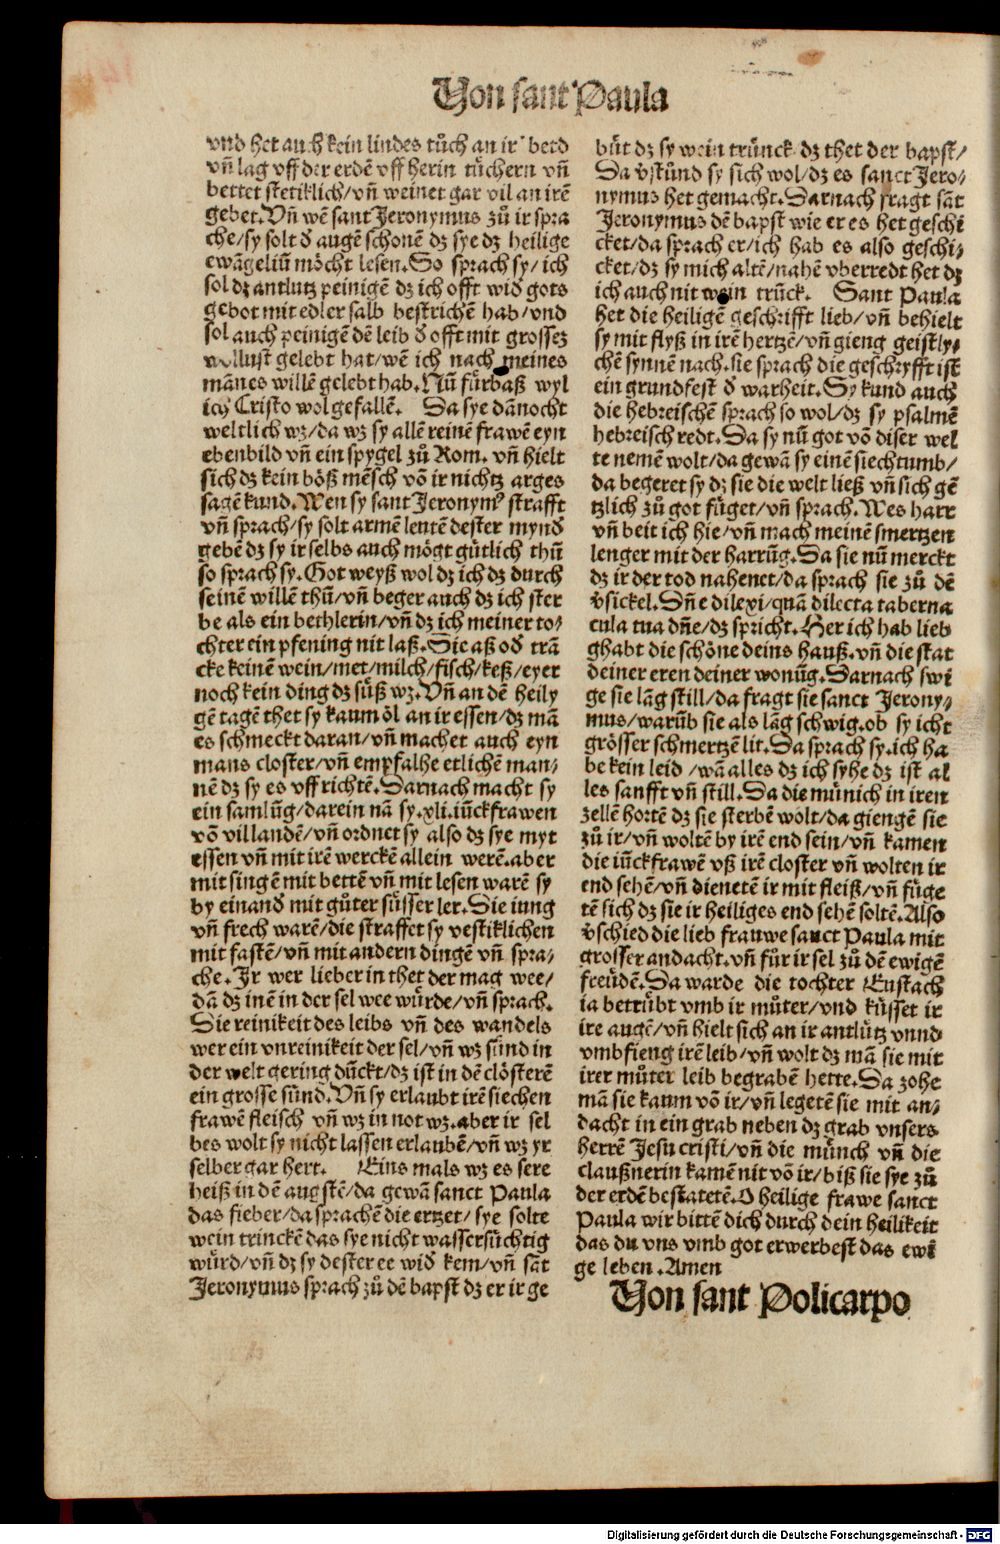 Von sant Paula
vnd het auch kein lindes tůch an ir betd
vñ lag vff der erdē vff herin tüchern vñ
bettet stetiklich/vñ weinet gar vil an irē
gebet. Vñ wē sant Jeronymus zů ir spra
che/sy solt d̕ augē schonē dz sye dz heilige
ewāgeliū möcht lesen. So sprach sy/ich
sol dz antlutz peinigē dz ich offt wid̕ gots
gebot mit edler salb bestrichē hab/vnd
sol auch peinigē dē leib d̕ offt mit grossez
wollust gelebt hat/wē ich nach meines
mānes willē gelebt hab. Nū fürbaß wyl
ich Cristo wol gefallē. Da sye dānocht
weltlich wz/da wz sy allē reinē frawē eyn
ebenbild vñ ein spygel zů Rom. vñ hielt
sich dz kein böß mēsch vō ir nichtz arges
sagē kund. Wen sy sant Jeronymꝰ strafft
vñ sprach/sy solt armē leutē dester mynd̕
gebē dz sy ir selbs auch mögt gůtlich thū
so sprach sy. Got weyß wol dz ich dz durch
seinē willē thū/vñ beger auch dz ich ster
be als ein bethlerin/vñ dz ich meiner to/
chter ein pfening nit laß. Sie aß od̕ trā
cke keinē wein/met/milch/fisch/keß/eyer
noch kein ding dz sůß wz. Vñ an dē heily
gē tagē thet sy kaum öl an ir essen/dz mā
es schmeckt daran/vñ machet auch eyn
mans closter/vñ empfalhe etlichē man/
nē dz sy es vff richtē. Darnach macht sy
ein samlūg/darein nā sy .xli. iūckfrawen
vō vil landē/vñ ordnet sy also dz sye myt
essen vñ mit irē werckē allein werē. aber
mit singē mit bettē vñ mit lesen warē sy
by einand̕ mit gůter süsser ler. Sie iung
vñ frech warē/die straffet sy vestiklichen
mit fastē/vñ mit andern dingē vñ spra/
che. Ir wer lieber in thet der mag wee/
dā dz inē in der sel wee würde/vñ sprach.
Die reinikeit des leibs vñ des wandels
wer ein vnreinikeit der sel/vñ wz sünd in
der welt gering dūckt/dz ist in dē clösterē
ein grosse sünd. Vñ sy erlaubt irē siechen
frawē fleisch vñ wz in not wz. aber ir sel
bes wolt sy nicht lassen erlaubē/vñ wz yr
selber gar hert. Eins mals wz es sere
heiß in dē augstē/da gewā sanct Paula
das fieber/da sprachē die ertzet/sye solte
wein trinckē das sye nicht wassersüchtig
würd/vñ dz sy dester ee wid̕ kem/vñ sāt
Jeronymus sprach zů dē bapst dz er ir ge
bůt dz sy wein trūnck. dz thet der bapst/
Da v̕stůnd sy sich wol/dz es sanct Jero/
nymus het gemacht. Darnach fragt sāt
Jeronymus dē bapst wie er es het geschi
cket/da sprach er/ich hab es also geschi/
cket/dz sy mich altē/nahē vberredt het dz
ich auch nit wein trūck. Sant Paula
het die heiligē geschrifft lieb/vñ behielt
sy mit flyß in irē hertzē/vñ gieng geistly/
chē synnē nach. sie sprach die geschryfft ist
ein grundfest d̕ warheit. Sy kund auch
die hebreischē sprach so wol/dz sy psalmē
hebreisch redt. Da sy nū got vō diser wel
te nemē wolt/da gewā sy einē siechtumb/
da begeret sy dz sie die welt ließ vñ sich gē
tzlich zů got füget/vñ sprach. Wes harr
vñ beit ich hie/vñ mach meinē smertzen
lenger mit der harrūg. Da sie nū merckt
dz ir der tod nahenet/da sprach sie zů dē
v̕sickel. Dñe dilexi/quā dilecta taberna
cula tua dñe/dz spricht. Her ich hab lieb
ghabt die schöne deins hauß. vñ die stat
deiner eren deiner wonūg. Darnach swi
ge sie lāg still/da fragt sie sanct Jerony/
mus/warūb sie als lāg schwig. ob sy icht
grösser schmertzē lit. Da sprach sy. ich ha
be kein leid/wā alles dz ich syhe dz ist al
les sanfft vñ still. Da die münich in iren
zellē hortē dz sie sterbē wolt/da giengē sie
zů ir/vñ woltē by irē end sein/vñ kamen
die iūckfrawē vß irē closter vñ wolten ir
end sehē/vñ dienetē ir mit fleiß/vñ füge
tē sich dz sie ir heiliges end sehē soltē. Also
v̕schied die lieb frauwe sanct Paula mit
grosser andacht. vñ fůr ir sel zů dē ewigē
freüdē. Da warde die tochter Eustach
ia betrübt vmb ir můter/vnd küsset ir
ire augē/vñ hielt sich an ir antlütz vnnd
vmbfieng irē leib/vñ wolt dz mā sie mit
irer můter leib begrabē hette. Da zohe
mā sie kaum vō ir/vñ legetē sie mit an/
dacht in ein grab neben dz grab vnsers
herrē Jesu cristi/vñ die münch vñ die
claußnerin kamē nit vō ir/biß sie sye zů
der erdē bestatetē. O heilige frawe sanct
Paula wir bittē dich durch dein heilikeit
das du vns vmb got erwerbest das ewi
ge leben. Amen
Von sant Policarpo
Digitalisierung gefördert durch die Deutsche Forschungsgemeinschaft - DFG